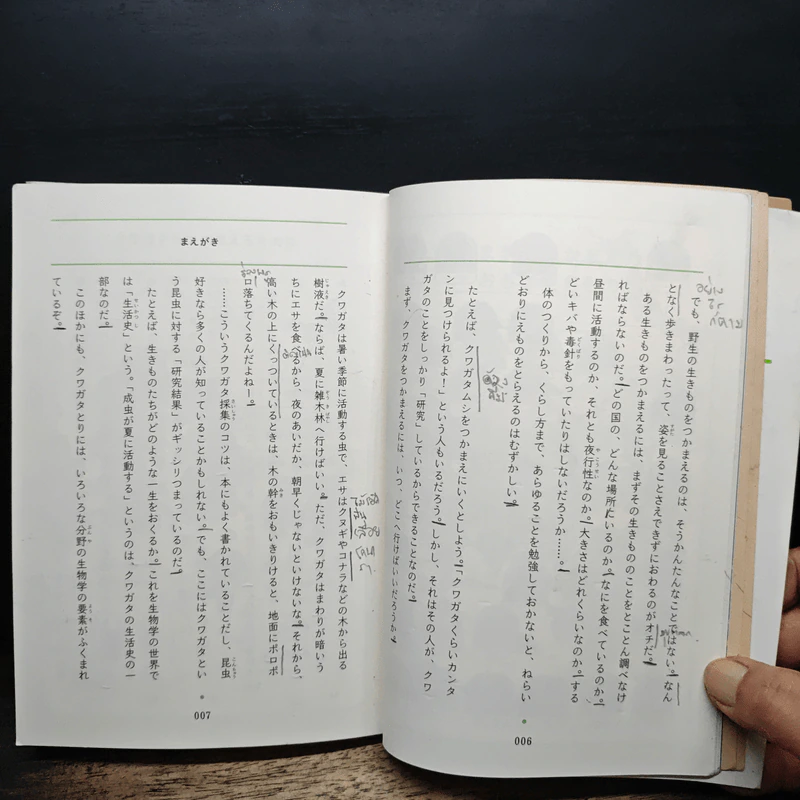 でも、野生の生きものをつかまえるのは、そうかんたんなことではない。なん
となく歩きまわったって、姿を見ることさえできずにおわるのがオチだ。
ある生きものをつかまえるには、まずその生きもののことをとことん調べなけ
ればならないのだ。どの国の、どんな場所にいるのか。なにを食べているのか。
昼間に活動するのか、それとも夜行性なのか。大きさはどれくらいなのか。する
どいキバや毒針をもっていたりはしないだろうか……。
体のつくりから、くらし方まで、あらゆることを勉強しておかないと、ねらい
どおりにえものをとらえるのはむずかしい。
たとえば、クワガタムシをつかまえにいくとしよう。「クワガタくらいカンタ
ンに見つけられるよ！」という人もいるだろう。しかし、それはその人が、クワ
ガタのことをしっかり「研究」しているからできることなのだ。
まず、クワガタをつかまえるには、いつ、どこへ行けばいいだろうか。
006
まえがき
クワガタは暑い季節に活動する虫で、エサはクヌギやコナラなどの木から出る
樹液だ。ならば、夏に雑木林へ行けばいい。ただ、クワガタはまわりが暗いう
ちにエサを食べるから、夜のあいだか、朝早くじゃないといけないな。それから、
高い木の上にくっついているときは、木の幹をおもいきりけると、地面にボロボ
ロ落ちてくるんだよねー。
……こういうクワガタ採集のコツは、本にもよく書かれていることだし、昆虫
好きなら多くの人が知っていることかもしれない。でも、ここにはクワガタとい
う昆虫に対する「研究結果」がギッシリつまっているのだ。
たとえば、生きものたちがどのような一生をおくるか。これを生物学の世界で
は「生活史」という。「成虫が夏に活動する」というのは、クワガタの生活史の一
部なのだ。
このほかにも、クワガタとりには、いろいろな分野の生物学の要素がふくまれ
ているぞ。
007